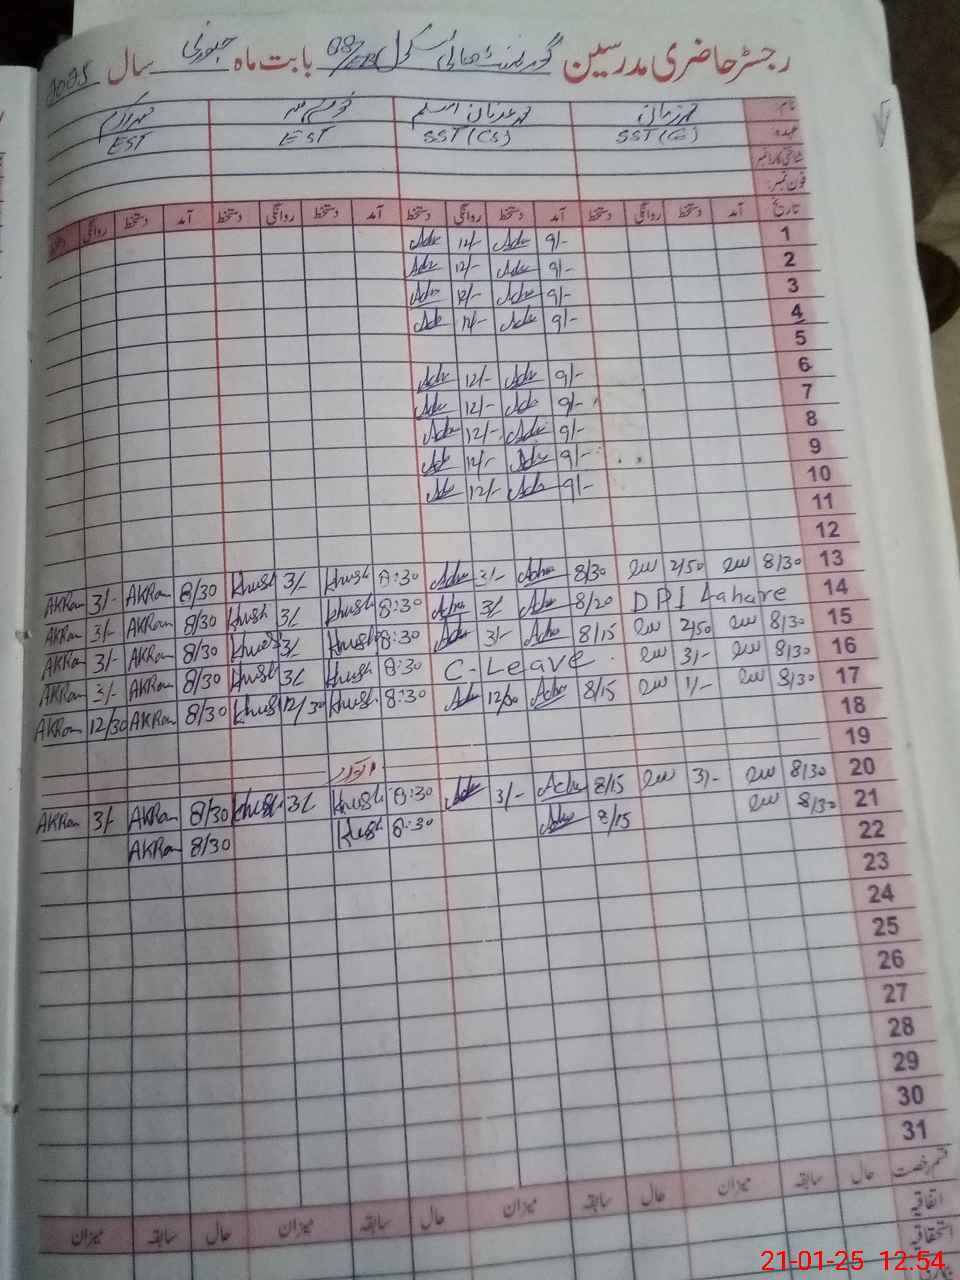 رجسٹر حاضری مدرسین گورنمنٹ ہائی سکول 08/ بابت ماہ جنوری سال 2025
نام: محمد عدنان اسلم محمد اکرم
عہدہ SST (CS) EST EST
شناختی کارڈ نمبر
فون نمبر:
تاریخ آمد دستخط روانگی دستخط آمد دستخط روانگی دستخط آمد دستخط روانگی دستخط آمد دستخط روانگی دستخط
1 9/- Adn 12/- Adn
2 9/- Adn 12/- Adn
3 9/- Adn 12/- Adn
4 9/- Adn 12/- Adn
5
6 9/- Adn 12/- Adn
7 9/- Adn 12/- Adn
8 9/- Adn 12/- Adn
9 9/- Adn 12/- Adn
10 9/- Adn 12/- Adn
11
12
13 8/30 2/50 8/30 Adn 3/- Adn 8:30 Khush 3/ Khush 8/30 AKRam 3/- AKRam
14 DPI Lahore 8/20 Adn 3/ Adn 8:30 Khush 3/ Khush 8/30 AKRam 3/- AKRam
15 8/30 2/50 8/15 Adn 3/- Adn 8:30 Khush 3/ Khush 8/30 AKRam 3/- AKRam
16 8/30 3/- C-Leave 8:30 Khush 3/ Khush 8/30 AKRam 3/- AKRam
17 8/30 1/- 8/15 Adn 12/30 Adn 8:30 Khush 12/30 Khush 8/30 AKRam 12/30 AKRam
18
19 اتوار
20 8/30 3/- 8/15 Adn 3/- Adn 8:30 Khush 3/ Khush 8/30 AKRam 3/- AKRam
21 8/30 8/15 Adn 8:30 Khush 8/30 AKRam
22
23
24
25
26
27
28
29
30
31
قسم رخصت حال سابقہ میزان حال سابقہ میزان حال سابقہ میزان حال سابقہ میزان
اتفاقیہ
استحقاقیہ
21-01-25 12:54